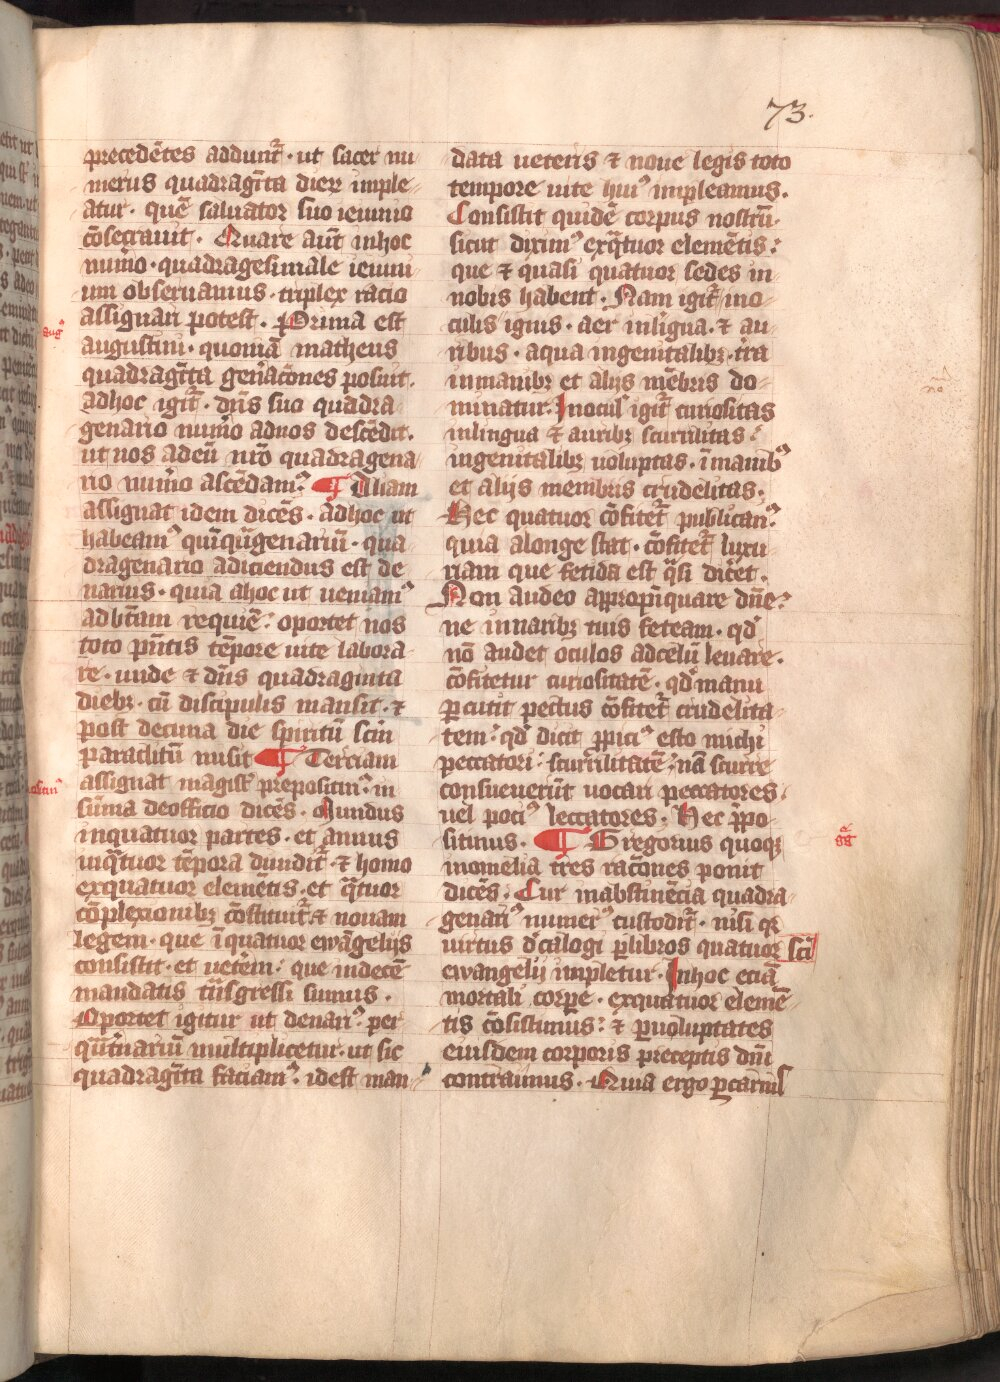 73.
precedētes addunt᷑ · ut sacer nu
merus quadragīta dierꝝ imple
atur · quē saluator suo ieiunio
cōsecrauit · Quare aūt inhoc
num̄o · quadragesimale ieiuni
um obseruamus · triplex racio
assignari potest · Prima est
augustini · quoniā matheus
quadragīta gen̄acōnes posuit ·
adhoc igit᷑ · dn̄s suo quadra
genario num̄o adnos descēdit ·
ut nos adeū nr̄o quadragena
rio num̄o ascēdamꝰ ¶ Aliam
assignat idem dicēs · adhoc ut
habeamꝰ quīqūgenariū · qua
dragenario adiciendus est de
narius · quia ahoc ut ueniamꝰ
adbt̄am requiē : oportet nos
toto pn̄tis tēpore uite labora
re · unde ⁊ dn̄s quadraginta
diebꝫ · cū discipulis mansit · ⁊
post decima die spiritū scm̄
paraclitū misit ¶ Terciam
assignat magist᷑ prepositinꝰ · in
sūma deofficio dicēs · Mundus
inquatuor partes · et annus
inq̄tuor tēpora diuidit᷑ · ⁊ homo
exquatuor elemētis · et q̄tuor
cōplexionibꝫ cōstituit᷑ · ⁊ nouam
legem · que īquatuor ewāgelijs
consistit · et ueterē : que indecē
mandatis tn̄sgressi sumus ·
Oportet igitur ut denariꝰ per
qūt̄nariū multiplicetur · ut sic
quadragīta faciamꝰ · idest man
data ueteris ⁊ noue legis toto
tempore uite huiꝰ impleamus ·
Consistit quidē corpus nostrū ·
sicut diximꝰ exq̄tuor elemētis :
que ⁊ quasi quatuor sedes in
nobis habent · Nam igit᷑ ino
culis ignis · aer inligua · ⁊ au
ribus · aqua ingenitalibꝫ · t̄ra
inmanibꝫ et alijs mēbris do
minatur · Inoculꝭ igit᷑ curiositas
inlingua ⁊ auribꝫ scurrilitas :
ingenitalibꝫ uoluptas · ī manibꝰ
et alijs membris crudelitas ·
Hec quatuor cōfitet᷑ publicanꝰ
quia alonge stat · cōfitet᷑ luxu
riam que fetida est q̄si dic̄et ·
Non audeo appropīquare dn̄e :
ne innaribꝫ tuis feteam · qd̄
nō audet oculos adcelū leuare ·
cōfitetur curiositatē · qd̄ manu
ꝑcutit pectus cōfitet᷑ crudelita
tem : qd̄ dicit ꝓpiciꝰ esto michi
peccatori : scurrilitatē ; nā scurre
consueuerūt uocari peccatores ·
uel pociꝰ leccatores · Hec p̄po
sitinus · ¶ Gregorius quoqꝫ
inomelia tres racōnes ponit
dicēs · Cur inabstinēcia quadra
genariꝰ numerꝰ custodit᷑ · nisi qꝛ
uirtus d̄calogi ꝑlibros quatuor sc̄i
ewangelij impletur · Inhoc eciā
mortali corꝑe · exquatuor elemē
tis cōsistimus : ⁊ ꝑuoluptates
eiusdem corporis preceptis dn̄i
contraimus · Quia ergo ꝑcarnis
augꝰ
g̅g̅